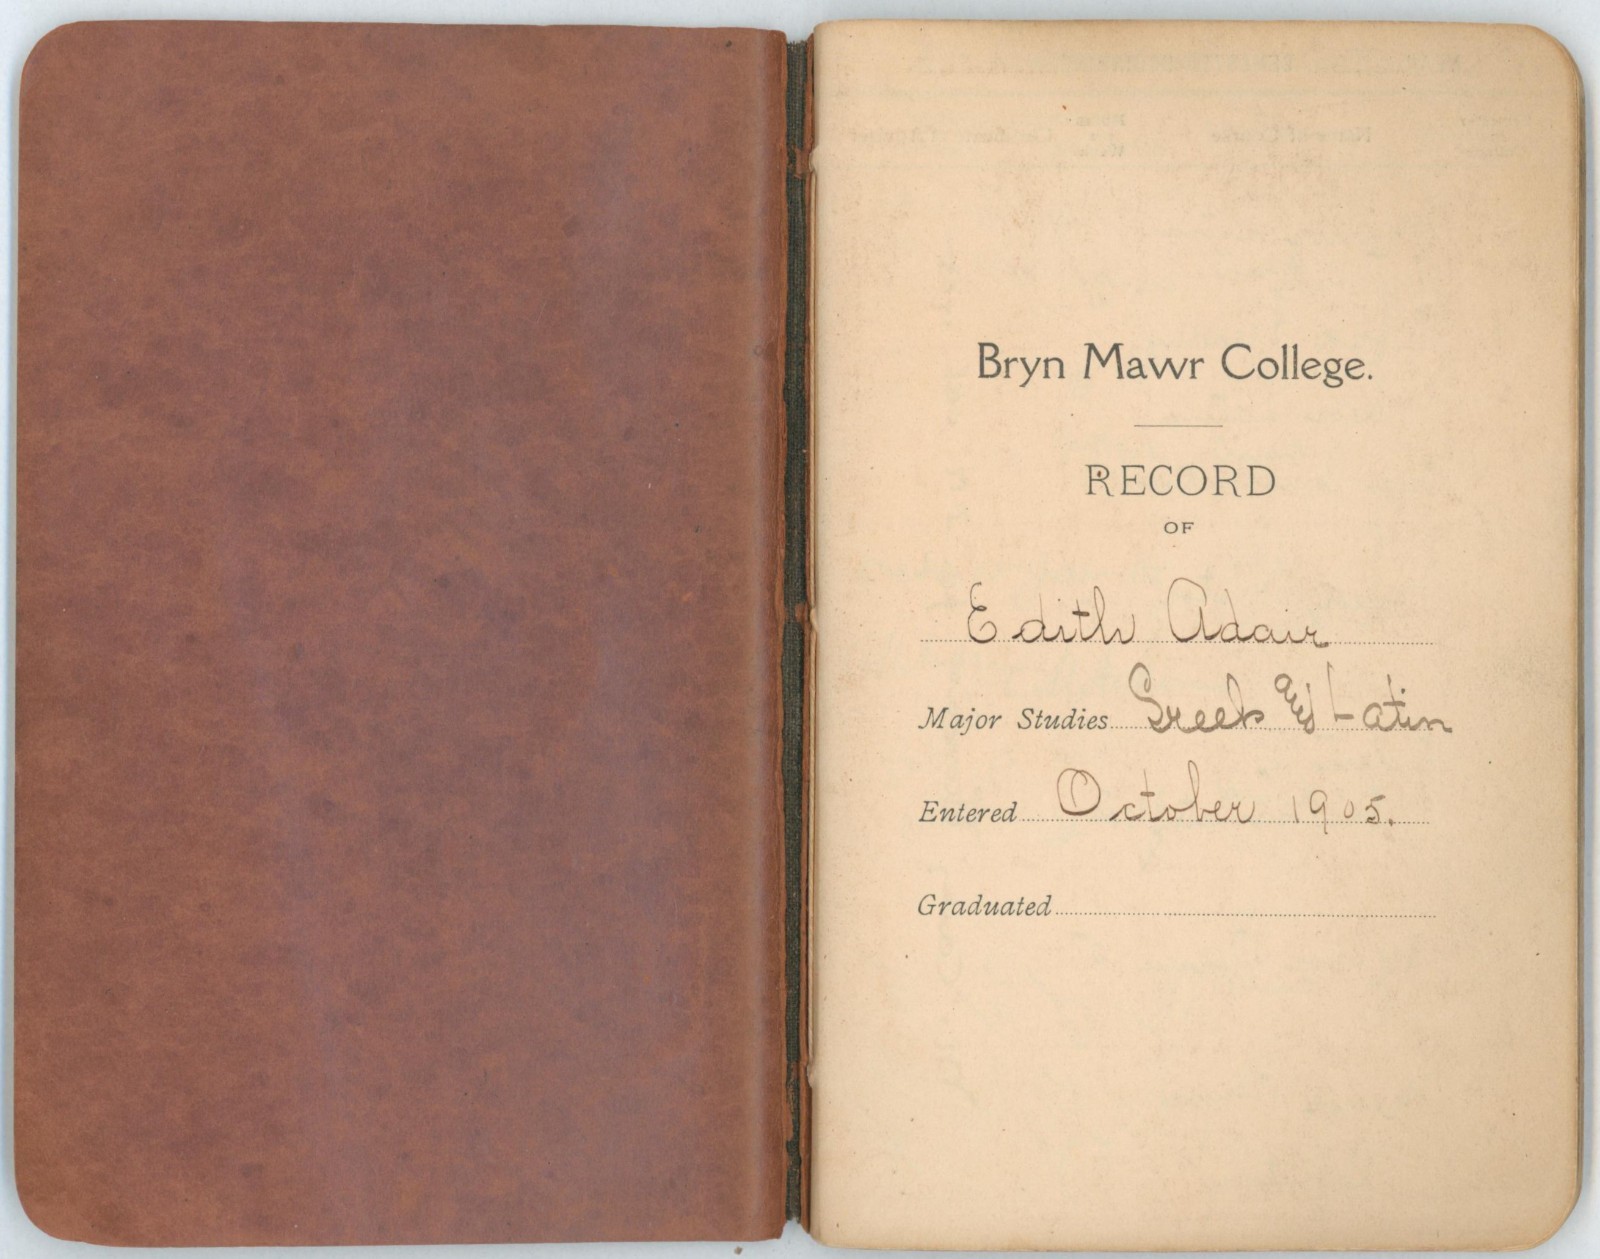 Bryn Mawr College.
RECORD
OF
Edith Adair
Major Studies Greek and Latin
Entered October 1905.
Graduated